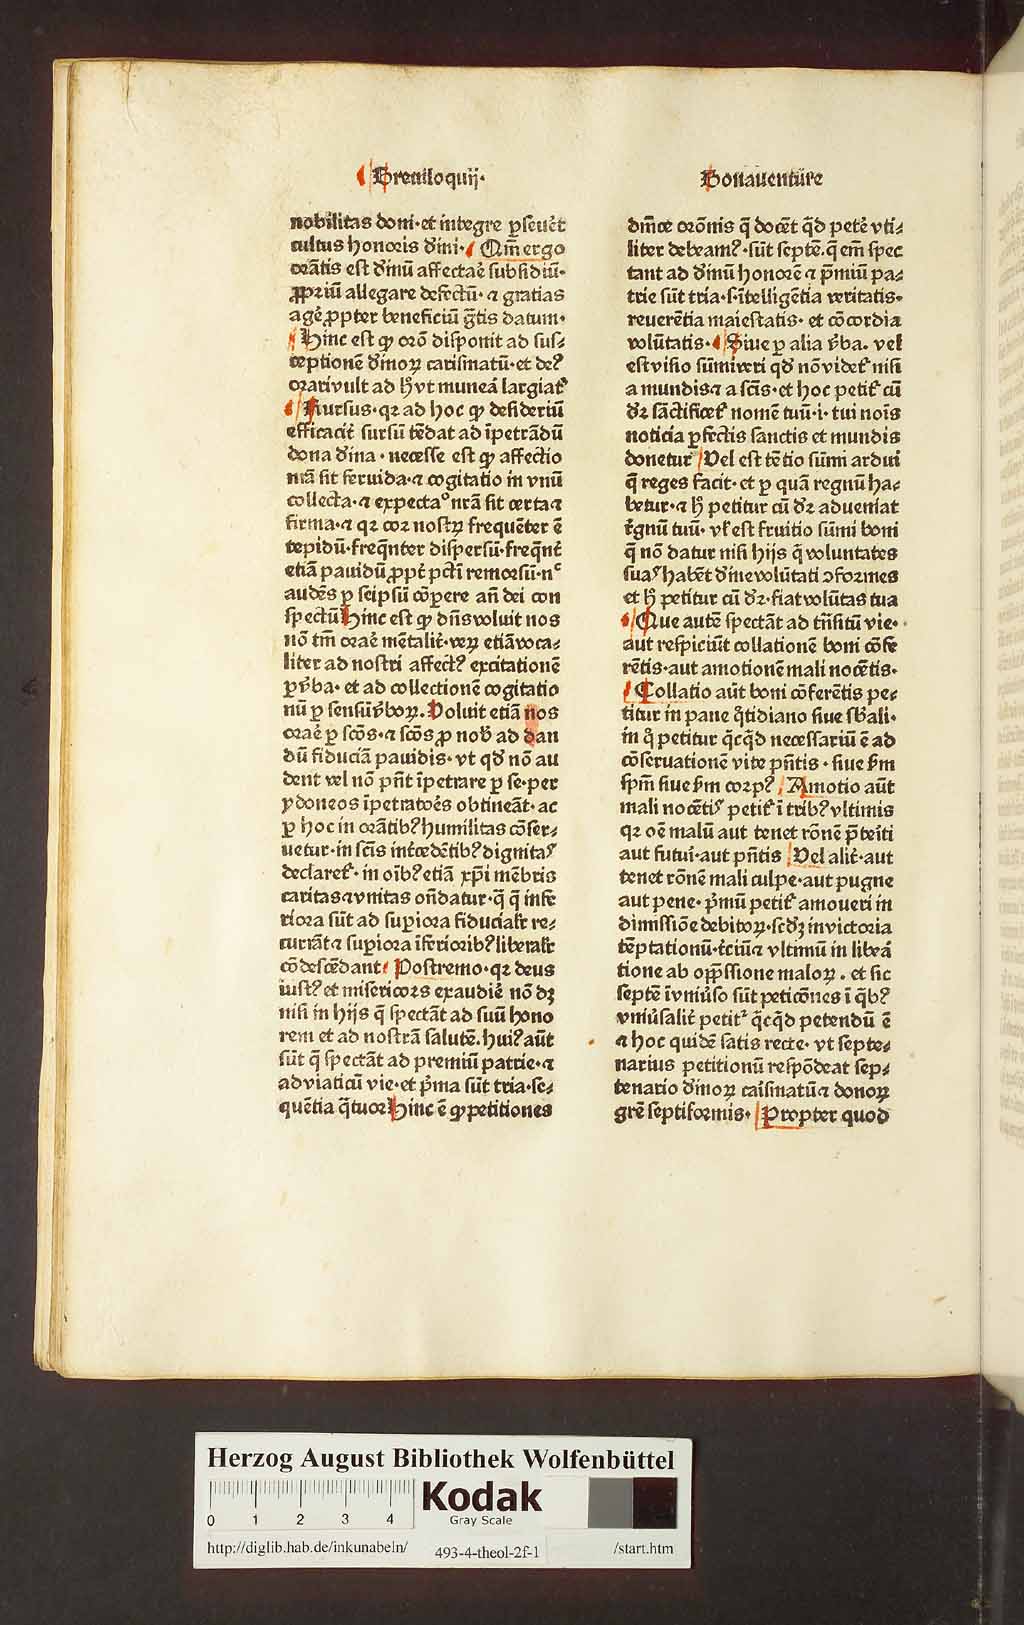 Breuiloquij·
Bonauenture
nobilitas doni· et integre ꝑseuẽt
cultus honoris dñni· Qm̃ ergo
orãtis est diuinũ affectaẻ subsidiũ·
ꝓpriũ allegare defectũ· ⁊ gratias
ageẻ ꝓpter beneficiũ gr̃tis datum·
Hinc est ꝙ orõ disponit ad sus⸗
ceptionẽ diuinoꝝ carismatũ· et deꝰ
orari vult ad hͦ vt muneá largiat᷑
Rursus· qꝛ ad hoc ꝙ desideriũ
efficacit̉ sursũ tẽdat ad ĩpetrãdũ
dona diuina · necesse est ꝙ affectio
nr̃a sit feruida· ⁊ cogitatio in vnũ
collecta· ⁊ expectaᵒ nr̃a sit certa ⁊
firma· ⁊ qꝛ cor nostꝝ frequẽter ẽ
tepidũ· freq̃nter dispersũ· freq̃nt̉
etiã pauidũ ꝓpt̉ pctĩ remorsũ· nᶜ
audẽs ꝑ seipsũ cõperere an̄ dei con
spectũ Hinc est ꝙ dñs voluit nos
nõ tm̃ oraẻ mẽtalit̉· veꝝ etiã voca⸗
liter ad nostri affectꝰ excitationẽ
ꝑ v̉ba· et ad collectionẽ cogitatio
nũ ꝑ sensũ v̉boꝝ. Voluit etiã nos
oraẻ ꝑ scõs· ⁊ scõs ꝓ nob̉ ad dan
dũ fiduciã pauidis· vt qd̉ nõ au
dent vel nõ pñt ĩpetrare ꝑ se· per
ydoneos ĩpetratoẻs obtineãt· ac
ꝑ hoc in orãtibꝰ humilitas cõser⸗
uetur· in scĩs int̉cedẽtibꝰ dignitaˢ
declaret᷑· in oĩbꝰ etiã xp̃i mẽbris
caritas ⁊ vnitas on̄datur· q̃ q̃ infe
riora sũt ad suꝑiora fiducialr̃ re⸗
currãt ⁊ suꝑiora ĩferioribꝰ liberalr̃
cõdescẽdant Postremo· qꝛ deus
iustꝰ et misericors exaudiẻ nõ dꝫ
nisi in hijs q̃ spectãt ad suũ hono
rem et ad nostrã salutẽ. huiꝰ aũt
sũt q̃ spectãt ad premiũ patrie· ⁊
ad viaticũ vie· et p̃ma sũt tria· se⸗
quẽtia q̃tuor Hinc ẽ ꝙ petitiones
dñice orõnis q̃ docẽt qd̉ petẻ vti⸗
liter debeamꝰ· sũt septẽ. q̃ em̃ spec
tant ad diuinũ honorẽ ⁊ p̃miũ pa⸗
trie sũt tria· s· ĩtelligẽtia veritatis·
reuerẽtia maiestatis· et cõcordia
volũtatis· Siue ꝑ alia v̉ba. vel
est visio sũmi veri qd̉ nõ videt᷑ nisi
a mundis ⁊ a scĩs· et hoc petit᷑ cũ
dꝛ sãctificet᷑ nomẽ tuũ· i· tui nois̃
noticia ꝑfectis sanctis et mundis
donetur Vel est tẽtio sũmi ardui
q̃ reges facit· et ꝑ quã regnũ ha⸗
betur· ⁊ hͦ petitur cũ dꝛ adueniat
r̉gnũ tuũ· vl̉ est fruitio sũmi boni
q̃ nõ datur nisi hijs q̃ voluntates
suaˢ habẽt diuine volũtati ↄformes
et hͦ petitur cũ dꝛ· fiat volũtas tua
Que autẽ spectãt ad trñsitũ vie·
aut respiciũt collationẽ boni cõfe
rẽtis· aut amotionẽ mali nocẽtis·
Collatio aũt boni cõferẽtis pe⸗
titur in pane q̉tidiano siue sb̉ali·
in q̉ petitur q̉cq̉d necessariũ ẽ ad
cõseruationẽ vite pñtis · siue ẜm
spm̃ siue ẜm corpꝰ Amotio aũt
mali nocẽtiˢ petit᷑ ĩ tribꝰ vltimis
qꝛ oẽ malũ aut tenet rõnẽ p̃teriti
aut futuri· aut pñtis Vel alit̉· aut
tenet rõnẽ mali culpe· aut pugne
aut pene· p̃mũ petit᷑ amoueri in
dimissiõe debitoꝝ· scd̉ꝫ in victoria
tẽptationũ· t̉ciũ ⁊ vltimũ in liberá
tione ab opp̃ssione maloꝝ. et sic
septẽ ĩ vniũso sũt peticõnes ĩ q̃bꝰ
vniũsalit̉ petit᷑ q̉cq̉d petendũ ẽ
⁊ hoc quidẽ satis recte· vt septe⸗
narius petitionũ respõdeat sep⸗
tenario diuinoꝝ caris̃matũ ⁊ donoꝝ
grẽ septiformis· Propter quod
Herzog August Bibliothek Wolfenbüttel
0 1 2 3 4
Kodak
Gray Scale
http://diglib.hab.de/inkunabeln/ 493-4-theol-2f-1 /start.htm